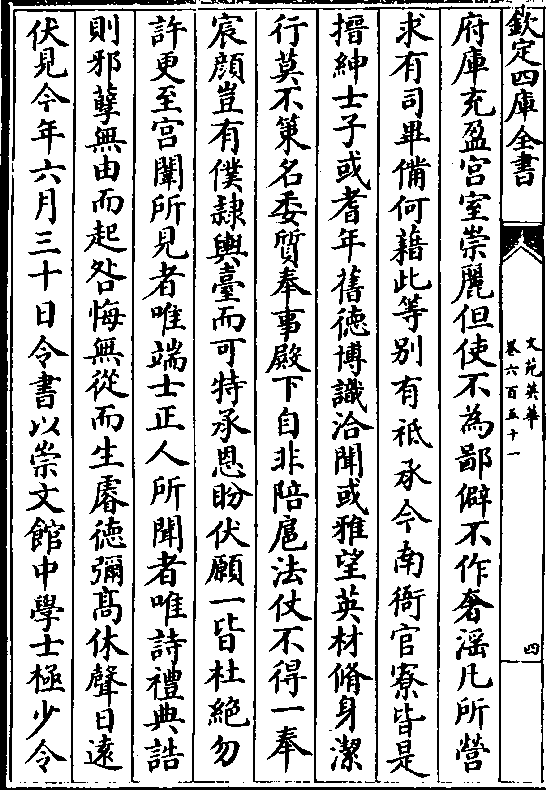 欽定四庫全書
文苑英華
卷六百五十一
四
府庫充盈宫室崇麗但使不為鄙僻不作奢滛凡所營
求有司畢備何藉此等别有祗承今南衙官寮皆是
搢紳士子或耆年舊徳博識洽聞或雅望英材脩身潔
行莫不策名委質奉事殿下自非陪扈法仗不得一奉
宸顔豈有僕隷輿臺而可特承恩盼伏願一皆杜絶勿
許更至宫闈所見者唯端士正人所聞者唯詩禮典誥
則邪孽無由而起咎悔無從而生睿徳彌髙休聲日逺
伏見今年六月三十日令書以崇文館中學士極少令